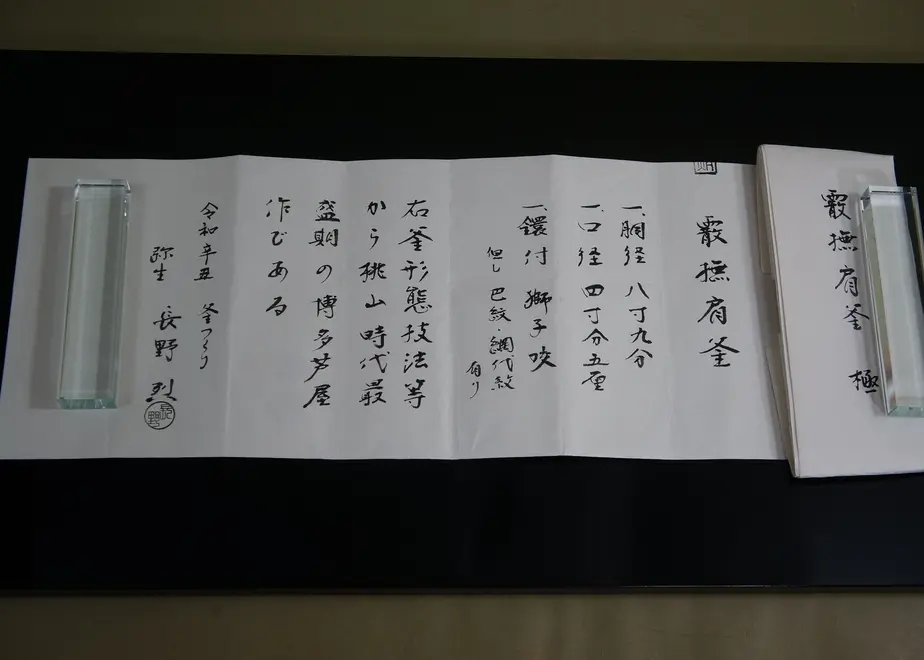 霰撫肩釜 極
霰撫肩釜
一、胴径 八寸九分
一、口径 四寸分五厘
一、鐶付 獅子咬
但し 巴紋・網代紋
有り
右釜形態技法等
から桃山時代最
盛期の博多芦屋
作である
令和辛丑 釜つくり
弥生 長野 烈
長野